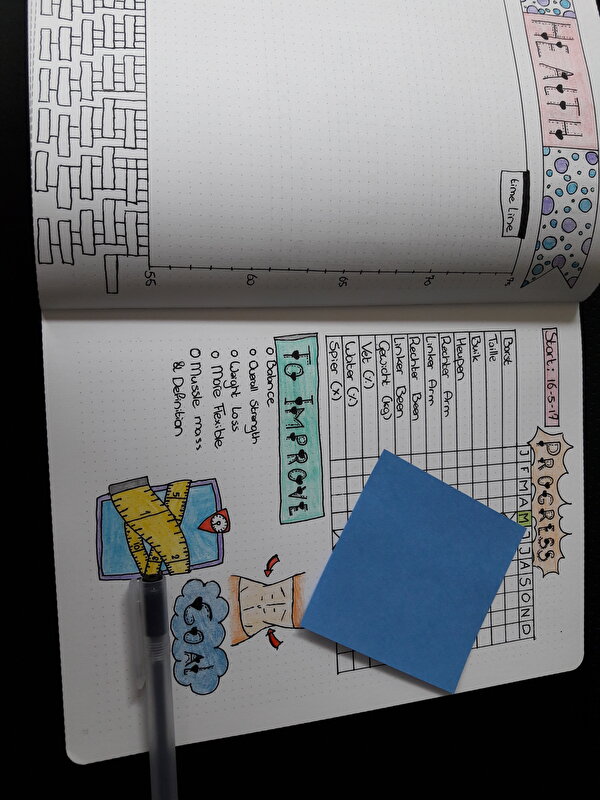 HEALTH
time Line
55
60
65
70
75
Start: 16-5-17
PROGRESS
J F M A M J J A S O N D
Borst
Taille
Buik
Heupen
Rechter Arm
Linker Arm
Rechter Been
Linker Been
Gewicht (kg)
Vet (%)
Water (%)
Spier (%)
TO IMPROVE
O Balance
O Overall Strength
O Weight Loss
O More Flexible
O Muscle mass
& Definition
GOAL